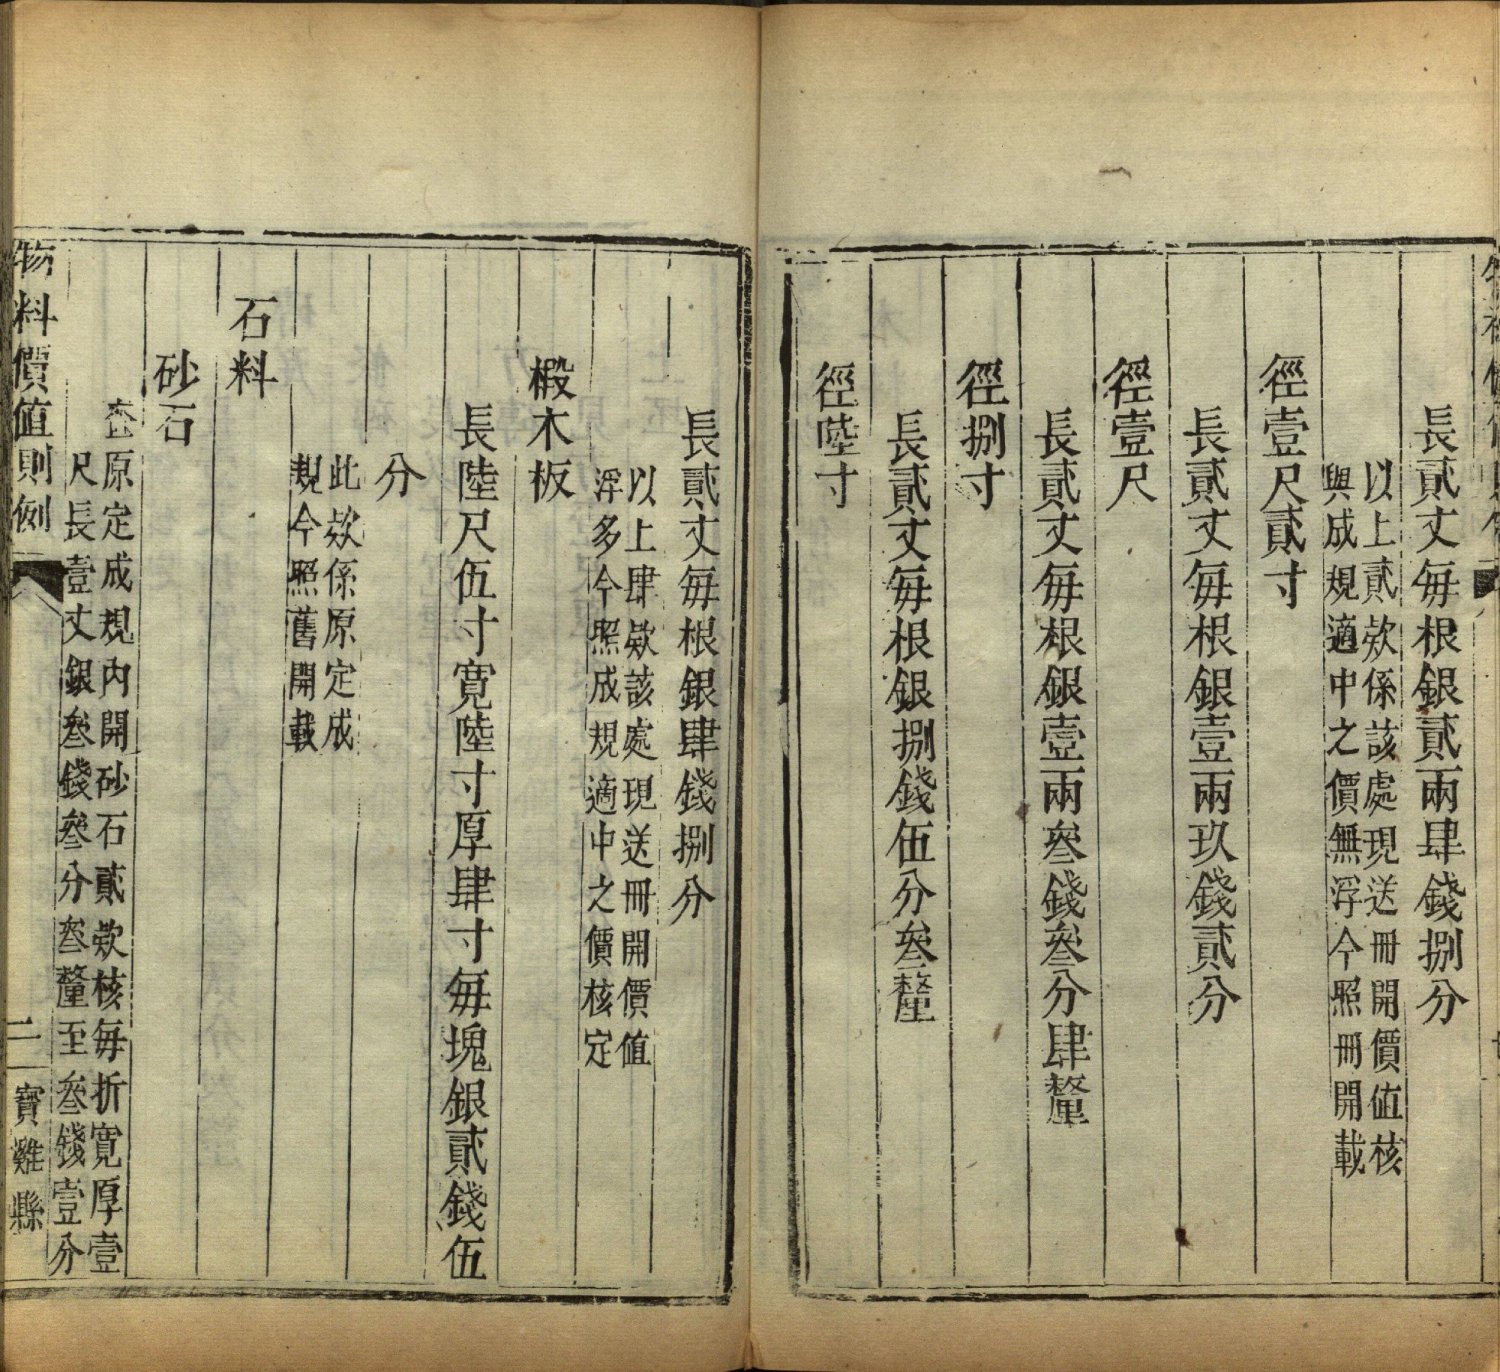 長貳丈每根銀貳兩肆錢捌分
以上貳欵係該處現送冊開價值核
與成規適中之價無浮今照冊開載
徑壹尺貳寸
長貳丈每根銀壹兩玖錢貳分
徑壹尺
長貳丈每根銀壹兩叁錢叁分肆釐
徑捌寸
長貳丈每根銀捌錢伍分叁釐
徑陸寸
長貳丈每根銀肆錢捌分
以上肆欵該處現送冊開價值
浮多今照成規適中之價核定
椴木板
長陸尺伍寸寛陸寸厚肆寸每塊銀貳錢伍
分
此欵係原定成
規今照舊開載
石料
砂石
查原定成規內開砂石貳欵核每折寛厚壹
尺長壹丈銀叁錢叁分叁釐至叁錢壹分
物料價值則例
二
寶雞縣